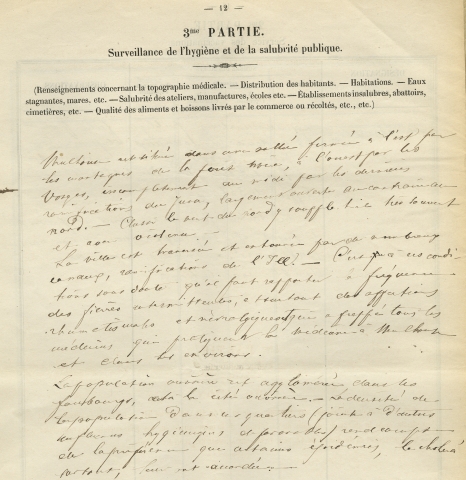 — 12 —
3me PARTIE.
Surveillance de l'hygiène et de la salubrité publique.
(Renseignements concernant la topographie médicale. — Distribution des habitants. — Habitations. — Eaux
stagnantes, mares, etc. — Salubrité des ateliers, manufactures, écoles etc. — Établissements insalubres, abattoirs,
cimetières, etc. — Qualité des aliments et boissons livrés par le commerce ou récoltés, etc., etc.)
Mulhouse est située dans une vallée fermée à l'est par
les montagnes de la forêt noire, à l'ouest par les
Vosges, incomplètement au midi par les dernières
ramifications du jura, largement ouverte au contraire au
nord. — Aussi le vent du nord y souffle très souvent
et avec violence.
La ville est traversée et entourée par de nombreux
canaux, ramifications de l'Ill. — C'est à ces condi
tions sans doute qu'il faut rapporter la fréquence
des fièvres intermittentes, et surtout des affections
rhumatismales et névralgiques qui a frappé tous les
médecins qui pratiquent la médecine à Mulhouse
et dans les environs.
La population ouvrière est agglomérée dans les
faubourgs, dans la cité ouvrière. — La densité de
la population dans ces quartiers (jointe à d'autres
influences hygiéniques défavorables) rend compte
de la préférence que certaines épidémies, le choléra
surtout, leur ont accordée. —